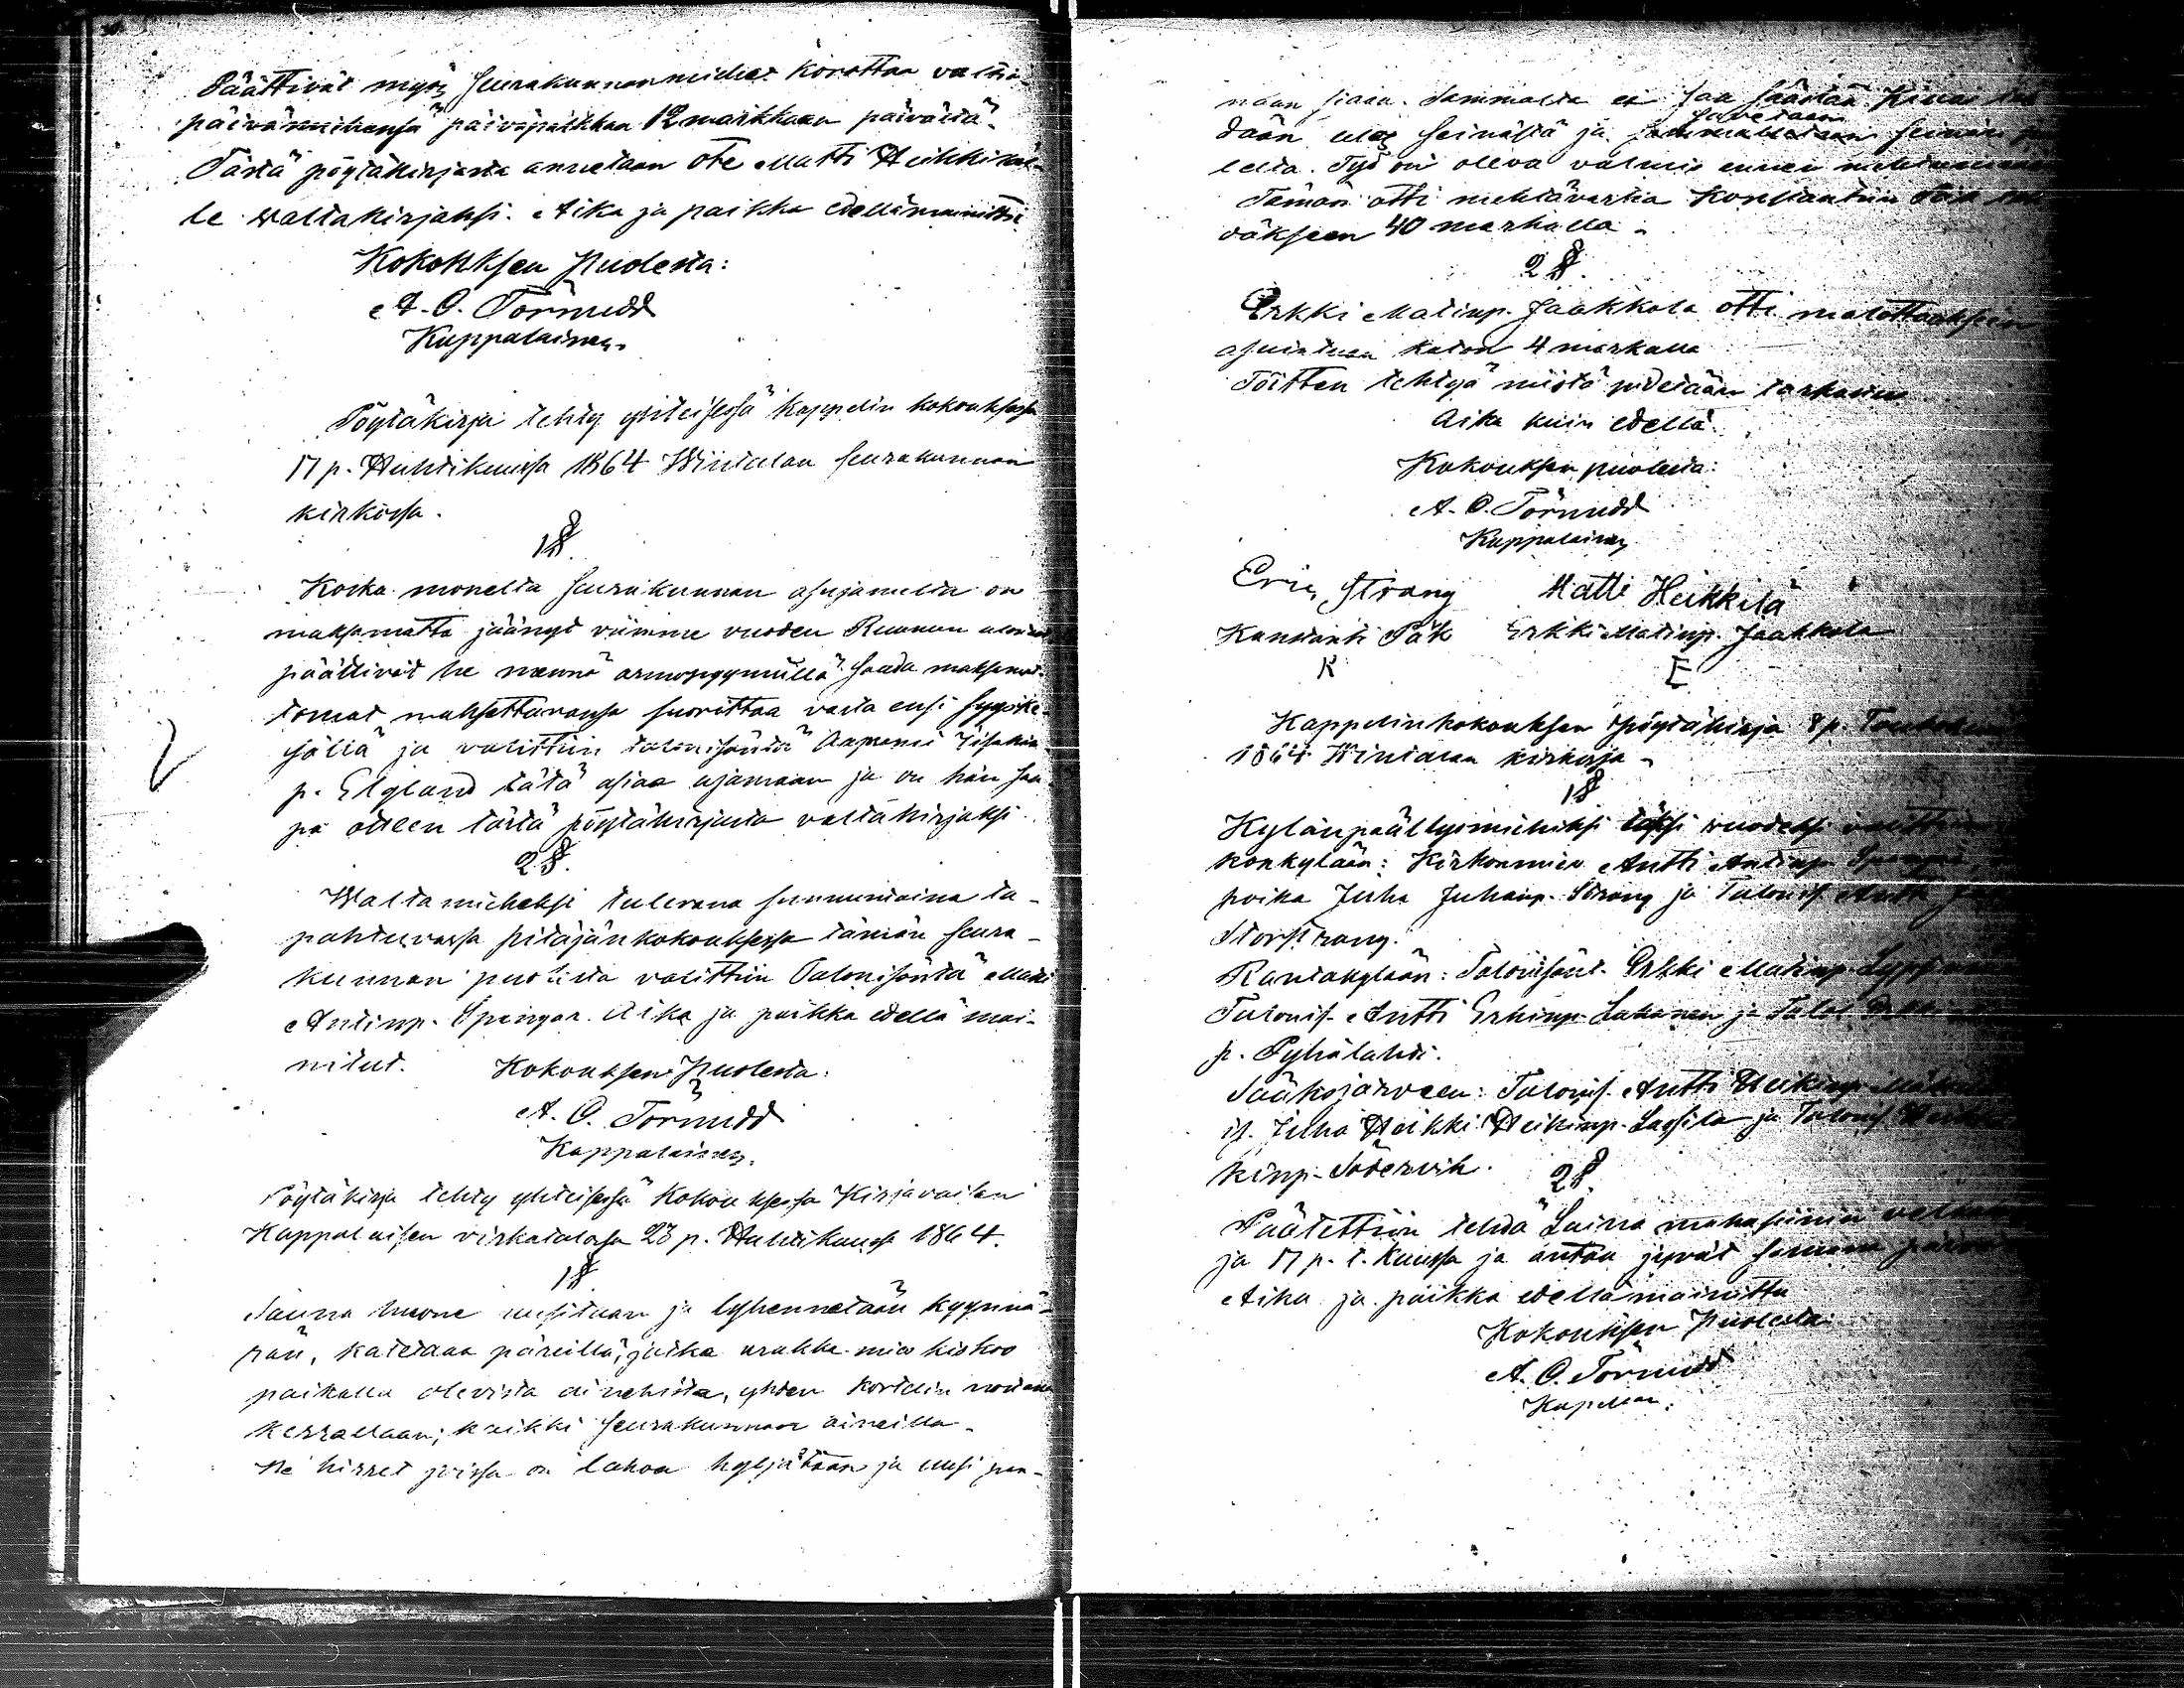 Päättivät myös Seurakunnanmiehet korottaa valtio-
päivämiehensä päiväpalkkaa 12 markkaan päivältä.
Tästä pöytäkirjasta annetaan ote Matti Heikkiläl-
le waltakirjaksi. Aika ja paikka edellämainittu
Kokouksen Puolesta:
A. O. Törnudd
Kappalainen.
Pöytäkirja tehty yhteisessä kappelin kokouksessa
17 p. Huhtikuussa 1864 Wintalan seurakunnan
kirkossa.
1 §
Koska monelta seurakunnan asujamelta on
maksamatta jäänyt viimme vuoden Ruunun
päättivät he nännä armopyynnillä saada maksamat-
tomat maksettavansa suorittaa vasta ensi syyske-
sällä ja valittiin talonisäntä Aaprami Iisakin
p. Elgland tätä asiaa ajamaan ja on hän saa-
pa otteen tästä pöytäkirjasta valtakirjaksi.
2 §.
Waltamieheksi tulevana sunnuntaina ta-
pahtuvassa pitäjänkokouksessa tämän seura-
kunnan puolesta valittiin Talonisäntä Matti
Antinp. Spangar. Aika ja paikka edellä mai-
nitut.
Kokouksen Puolesta:
A. O. Törnudd
Kappalainen.
Pöytäkirja tehty yhteisessä Kokouksessa Kirjavaisen
Kappalaisen virkatalossa 23 p. Huhtikuussa 1864.
1 §
Sauna huone uusitaan ja lyhennetään kyynä-
rän, katetaan päreillä, jotka urakka-mies kiskoo
paikalla olevista ainehista, yhden kortelin
kerrallaan; kaikki seurakunnan aineilla.
Ne hirret joissa on lahoa hyljätään ja uusi pan-
naan siaan. Sammalta ei saa säästää. Kiuas
dään ulos seinästä ja savetaan seinän
lelta. Työ on oleva valmis ennen
Tämän otti mehtävartia Konstantin Päk
väkseen 40 markalla.
2 §.
Erkki Matinp. Jaakkola otti
asuintuan katon 4 markalla
Töitten tehtyä niistä pidetään tarkastus
Aika kuin edellä.
Kokouksen puolesta:
A. O. Törnudd
Kappalainen
Eric Strang Matti Heikkilä
Kunstanti Päk Erkki Matinp. Jaakkola
K E
Kappelinkokouksen Pöytäkirja 8 p. Toukokuussa
1864 Wintalan kirkossa.
1 §
Kylänpäällysmiehiksi täksi vuodeksi valittiin
konkylään: Kirkonmies Antti Antinp. Spangar,
poika Juha Juhanp. Strang ja Talonis. Antti
Storstrang.
Rantakylään: Talonisänt. Erkki Matinp.
Talonis. Antti Erkinp. Lahanen ja Talol.
p. Pyhälahti.
Sääksjärveen: Talonis. Antti Heikinp.
is. Juha Heikki Heikinp. Lassila ja Talonis.
kinp. Södervik.
2 §.
Päätettiin tehdä Laina makasiinin
ja 17 p. t. kuussa ja antaa jyvät samana
Aika ja paikka edellämainittu
Kokouksen Puolesta
A. O. Törnudd
Kapellan.